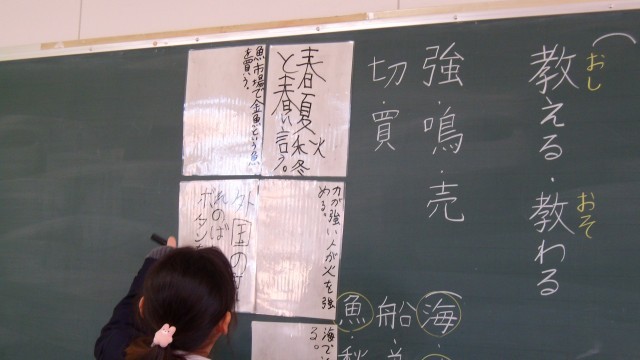 教える・教わる
おし
おそ
強・鳴・売
切・買
海・
船・
魚・秋
春夏秋冬
と春い言う。
魚市場で金魚という魚
を買う。
力が強い人が火を強
める。
外国の
れのば
ボタン
海で
る。